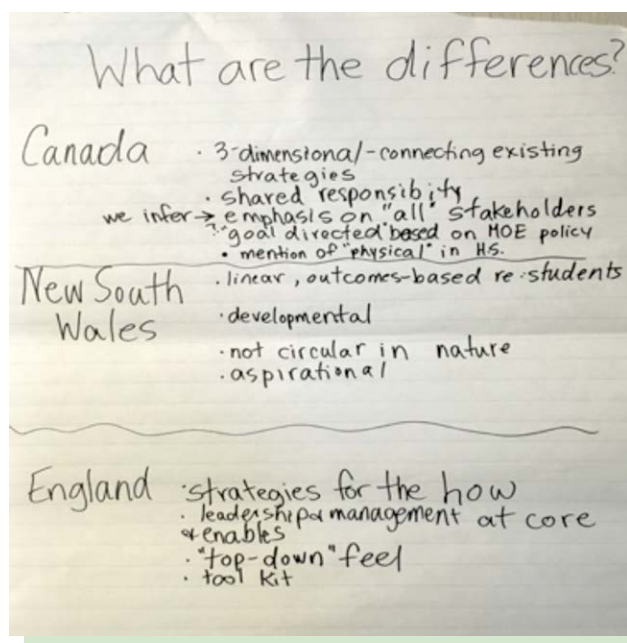 What are the differences?
Canada · 3-dimensional-connecting existing
strategies
· shared responsibity
we infer → emphasis on "all" stakeholders
"goal directed" based on MOE policy
• mention of "physical" in H.S.
New South · linear, outcomes-based re: students
Wales · developmental
· not circular in nature
· aspirational
England · strategies for the how
· leadership & management at core
& enables
· "top-down" feel
· tool kit